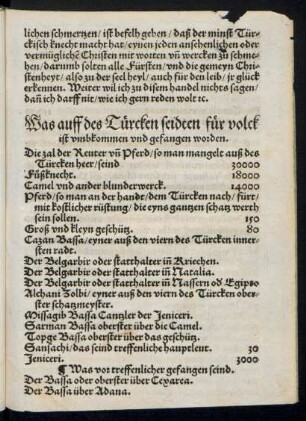 lichen schmertzen / ist befelh gehen / daß der minst Tür-
ckisch knecht macht hat / eynen jeden ansehenlichen oder
vermüglichẽ Christen mit worten vñ wercken zů schme-
hen / darumb solten alle Fürsten / vnd die gemeyn Chri-
stenheyt / also zu der seel heyl / auch für den leib / jr glück
erkennen. Weiter wil ich zu disem handel nichts sagen /
dañ ich darff nit / wie ich gern reden wolt ꝛc.
Was auff des Türcken seidten für volck
ist vmbkommen vnd gefangen worden.
Die zal der Reuter vñ Pferd / so man mangelt auß des
Türcken hier / seind 30000
Fůßknecht. 18000
Camel vnd ander blunderwerck. 14000
Pferd / so man an der handt / dem Türcken nach / fürt /
mit kostlicher rüstung / die eyns gantzen schatz werth
sein sollen. 150
Groß vnd kleyn geschütz. 80
Cazan Bassa / eyner auß den viern des Türcken inner-
sten radt.
Der Belgarbir oder statthalter iñ Kriechen.
Der Belgarbir oder statthalter iñ Natalia.
Der Belgarbir oder statthalter iñ Nassern oď Egipto
Alchani Zolbi / eyner auß den viern des Türcken ober-
ster schatzmeyster.
Missagib Bassa Cantzler der Jeniceri.
Sarman Bassa oberster über die Camel.
Topge Bassa oberster über das geschütz.
Sansachi / das seind treffenliche hauptleut. 30
Jeniceri. 3000
¶ Was vor treffenlicher gefangen seind.
Der Bassa oder oberster über Cexarea.
Der Bassa über Adana.